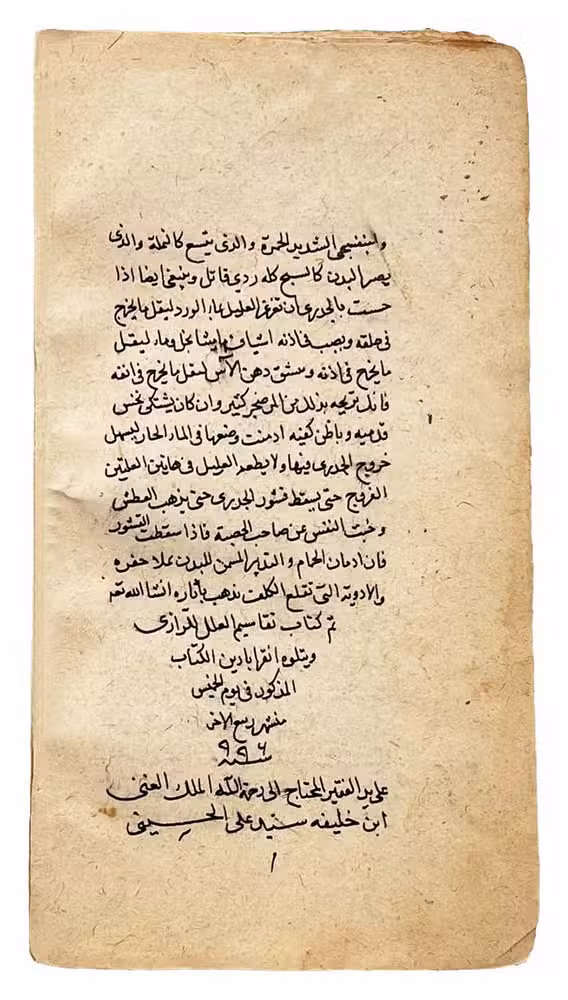 والبنفسجى الشديد الحمرة والذى يتسع كالنملة والذى
يصر البدن كالسبح كله ردى قاتل وينبغى ايضا اذا
حسست بالجدرى ان تغرغر العليل بماء الورد ليقل ما يخرج
فى حلقه ويصب فى اذنه اشياف ماميثا بخل وماء ليقل
ما يخرج فى اذنه وينشق دهن الآس ليقل ما يخرج فى انفه
فانك تريحه بذلك من كثير وان كان يشتكى نخس
قدميه وباطن كفيه ادمنت وضعها فى الماء الحار ليسهل
خروج الجدرى فيها ولا يطعم العليل فى هاتين العلتين
الفروج حتى يسقط قشور الجدرى حتى يذهب العطش
وخبث النفس عن صاحب الحصبة فاذا سقطت القشور
فان ادمان الحمام والتدبير المسمن للبدن يملا حفره
والادوية التى تقلع الكلف يذهب بآثاره انشا الله تعه
تم كتاب تقاسيم العلل للرازى
ويتلوه اقرابادين الكتاب
المذكور فى يوم الخميس
من شهر ربيع الاخر
سنه ٩٩٦
على يد الفقير المحتاج الى رحمة الله الملك الغنى
ابن خليفه سيد على الحسينى